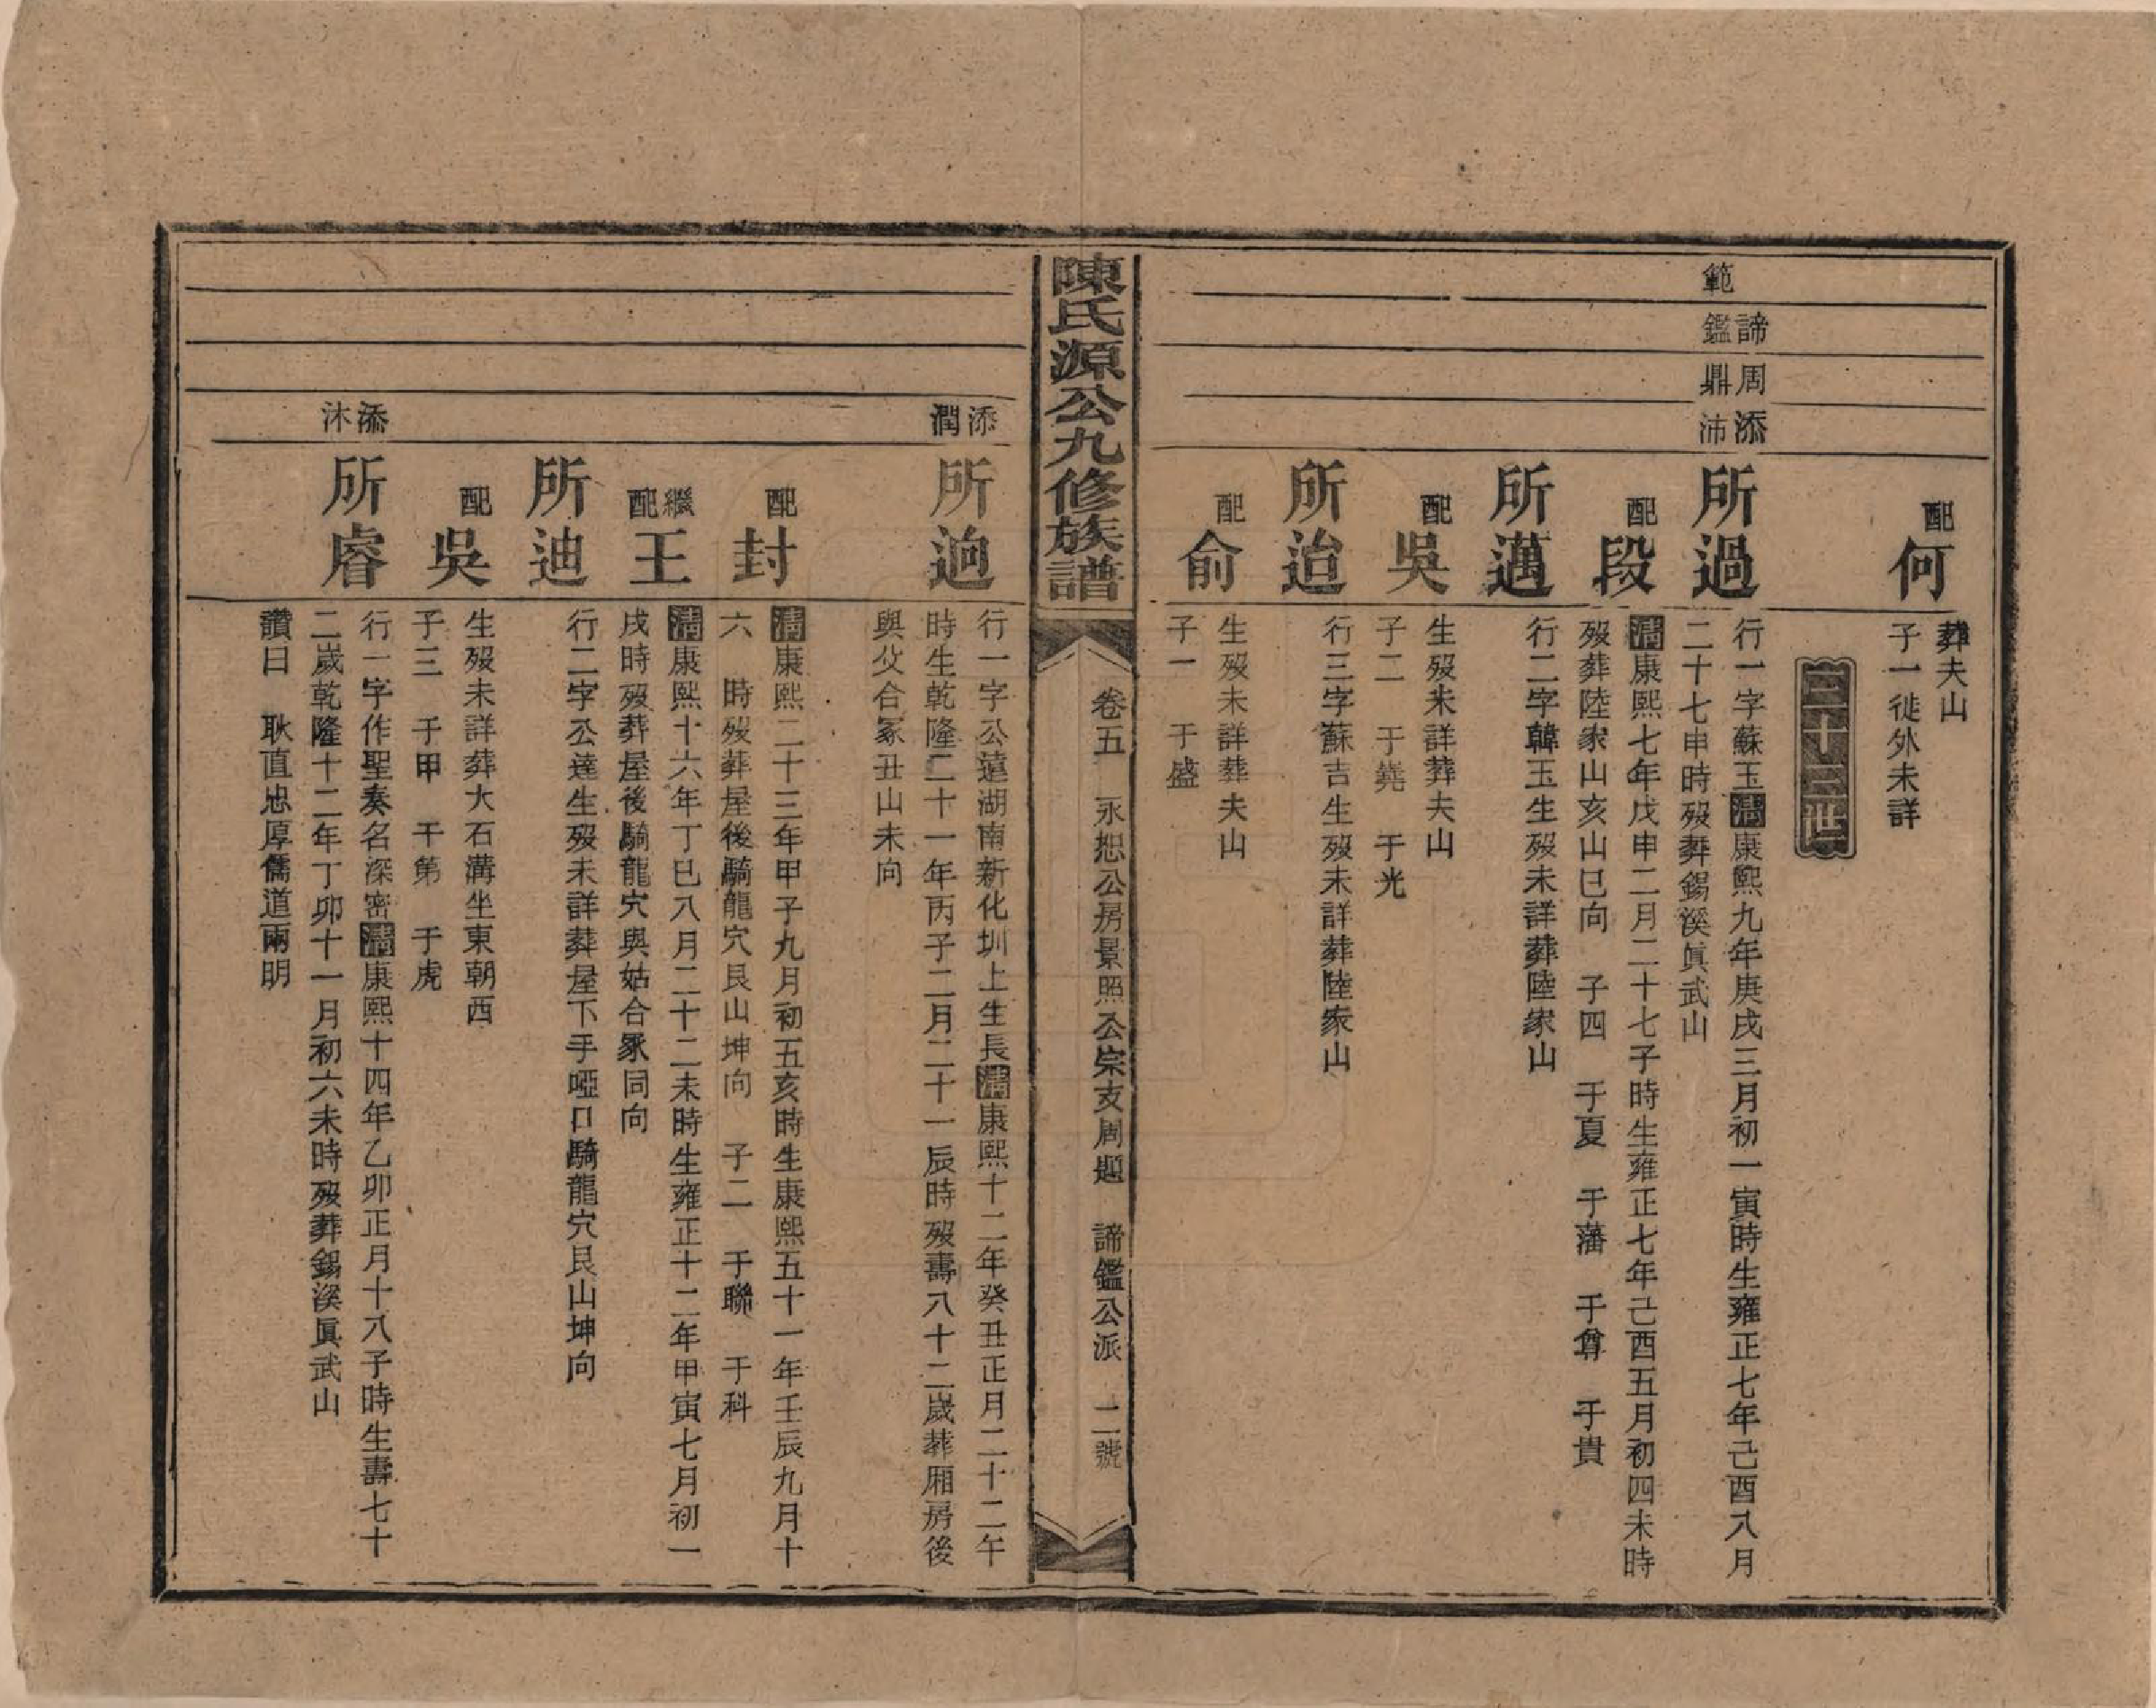 配何
葬夫山
子一徙外未詳
三十三世
範
諦鑑
周鼎
添沛
所過
行一字蘇玉清康熙九年庚戌三月初一寅時生雍正七年己酉八月
二十七申時歿葬錫溪眞武山
配段
清康熙七年戊申二月二十七子時生雍正七年己酉五月初四未時
歿葬陸家山亥山巳向 子四 于夏 于藩 于尊 于貴
所邁
行二字韓玉生歿未詳葬陸家山
配吳
生歿未詳葬夫山
子二 于堯 于光
所迨
行三字蘇吉生歿未詳葬陸家山
配俞
生歿未詳葬夫山
子一 于盛
陳氏源公九修族譜
卷五 永恕公房景照公宗支周題 諦鑑公派 二號
添潤
所逈
行一字公遠湖南新化圳上生長清康熙十二年癸丑正月二十二午
時生乾隆二十一年丙子二月二十一辰時歿壽八十二歲葬厢房後
與父合冢丑山未向
配封
清康熙二十三年甲子九月初五亥時生康熙五十一年壬辰九月十
六 時歿葬屋後騎龍穴艮山坤向 子二 于聯 于科
繼配王
清康熙十六年丁巳八月二十二未時生雍正十二年甲寅七月初一
戌時歿葬屋後騎龍穴與姑合冢同向
所迪
行二字公達生歿未詳葬屋下手啞口騎龍穴艮山坤向
配吳
生歿未詳葬大石溝坐東朝西
子三 于甲 于第 于虎
添沐
所睿
行一字作聖奏名深密清康熙十四年乙卯正月十八子時生壽七十
二歲乾隆十二年丁卯十一月初六未時歿葬錫溪眞武山
讚曰 耿直忠厚儒道兩明